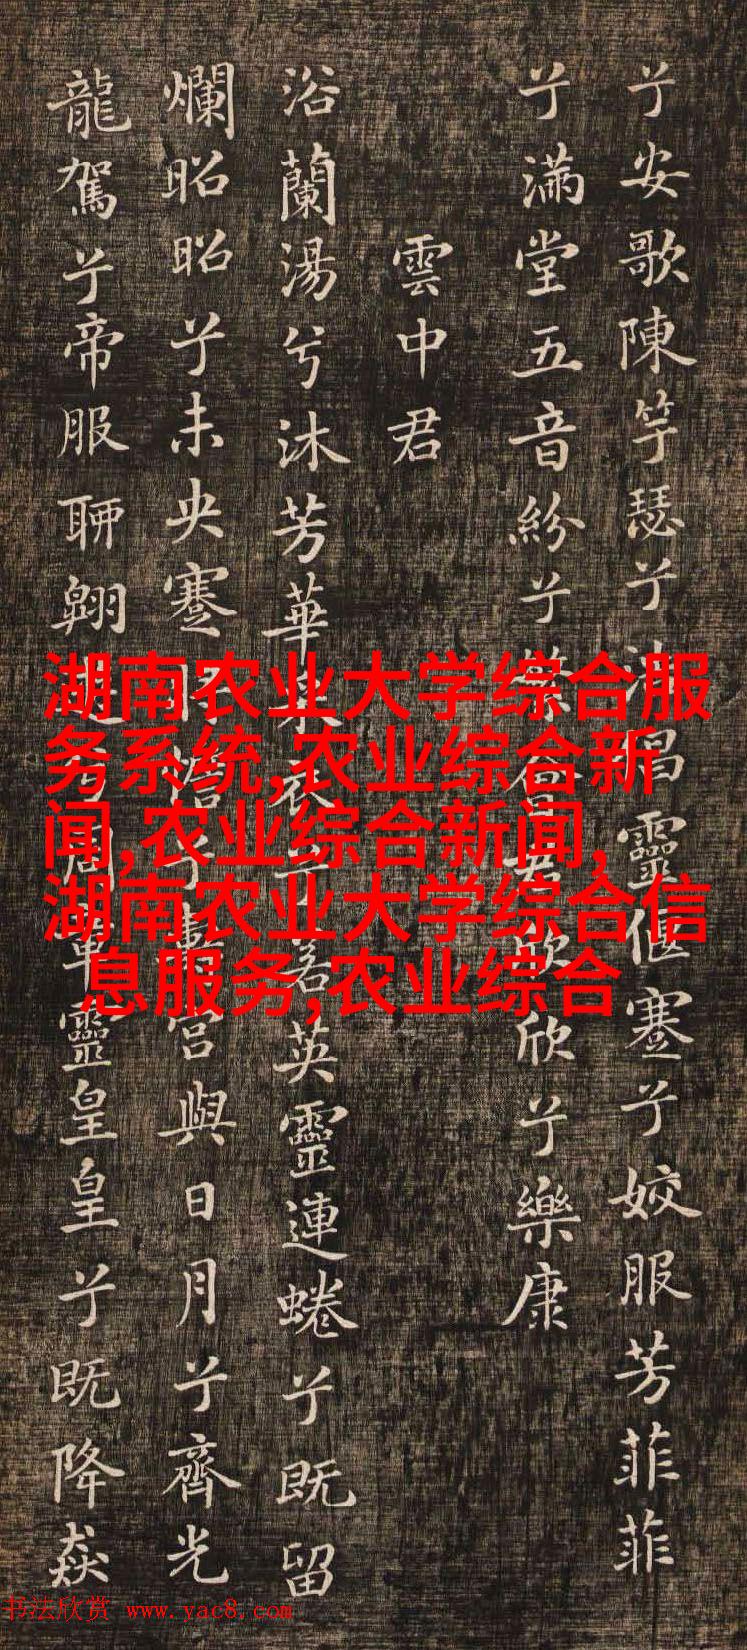 兮安歌陳竽瑟兮浩倡靈偃蹇兮姣服芳菲菲
兮滿堂五音紛兮繁會君欣欣兮樂康
雲中君
浴蘭湯兮沐芳華采衣兮若英靈連蜷兮既留
爛昭昭兮未央蹇憺兮壽宮與日月兮齊光
龍駕兮帝服聊翱兮周章靈皇皇兮既降猋
湖南农业大学综合服
务系统,农业综合新
闻,农业综合新闻,
湖南农业大学综合信
息服务,农业综合
书法欣赏 www.yac8.com